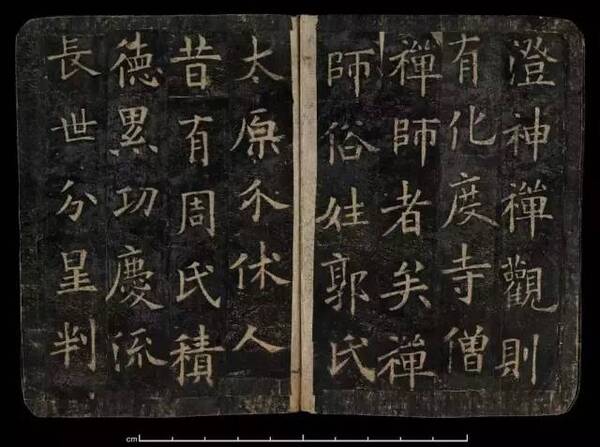 澄神禪觀則
有化度寺僧
禪師者矣禪
師俗姓郭氏
太原介休人
昔有周氏積
德累功慶流
長世分星判
cm